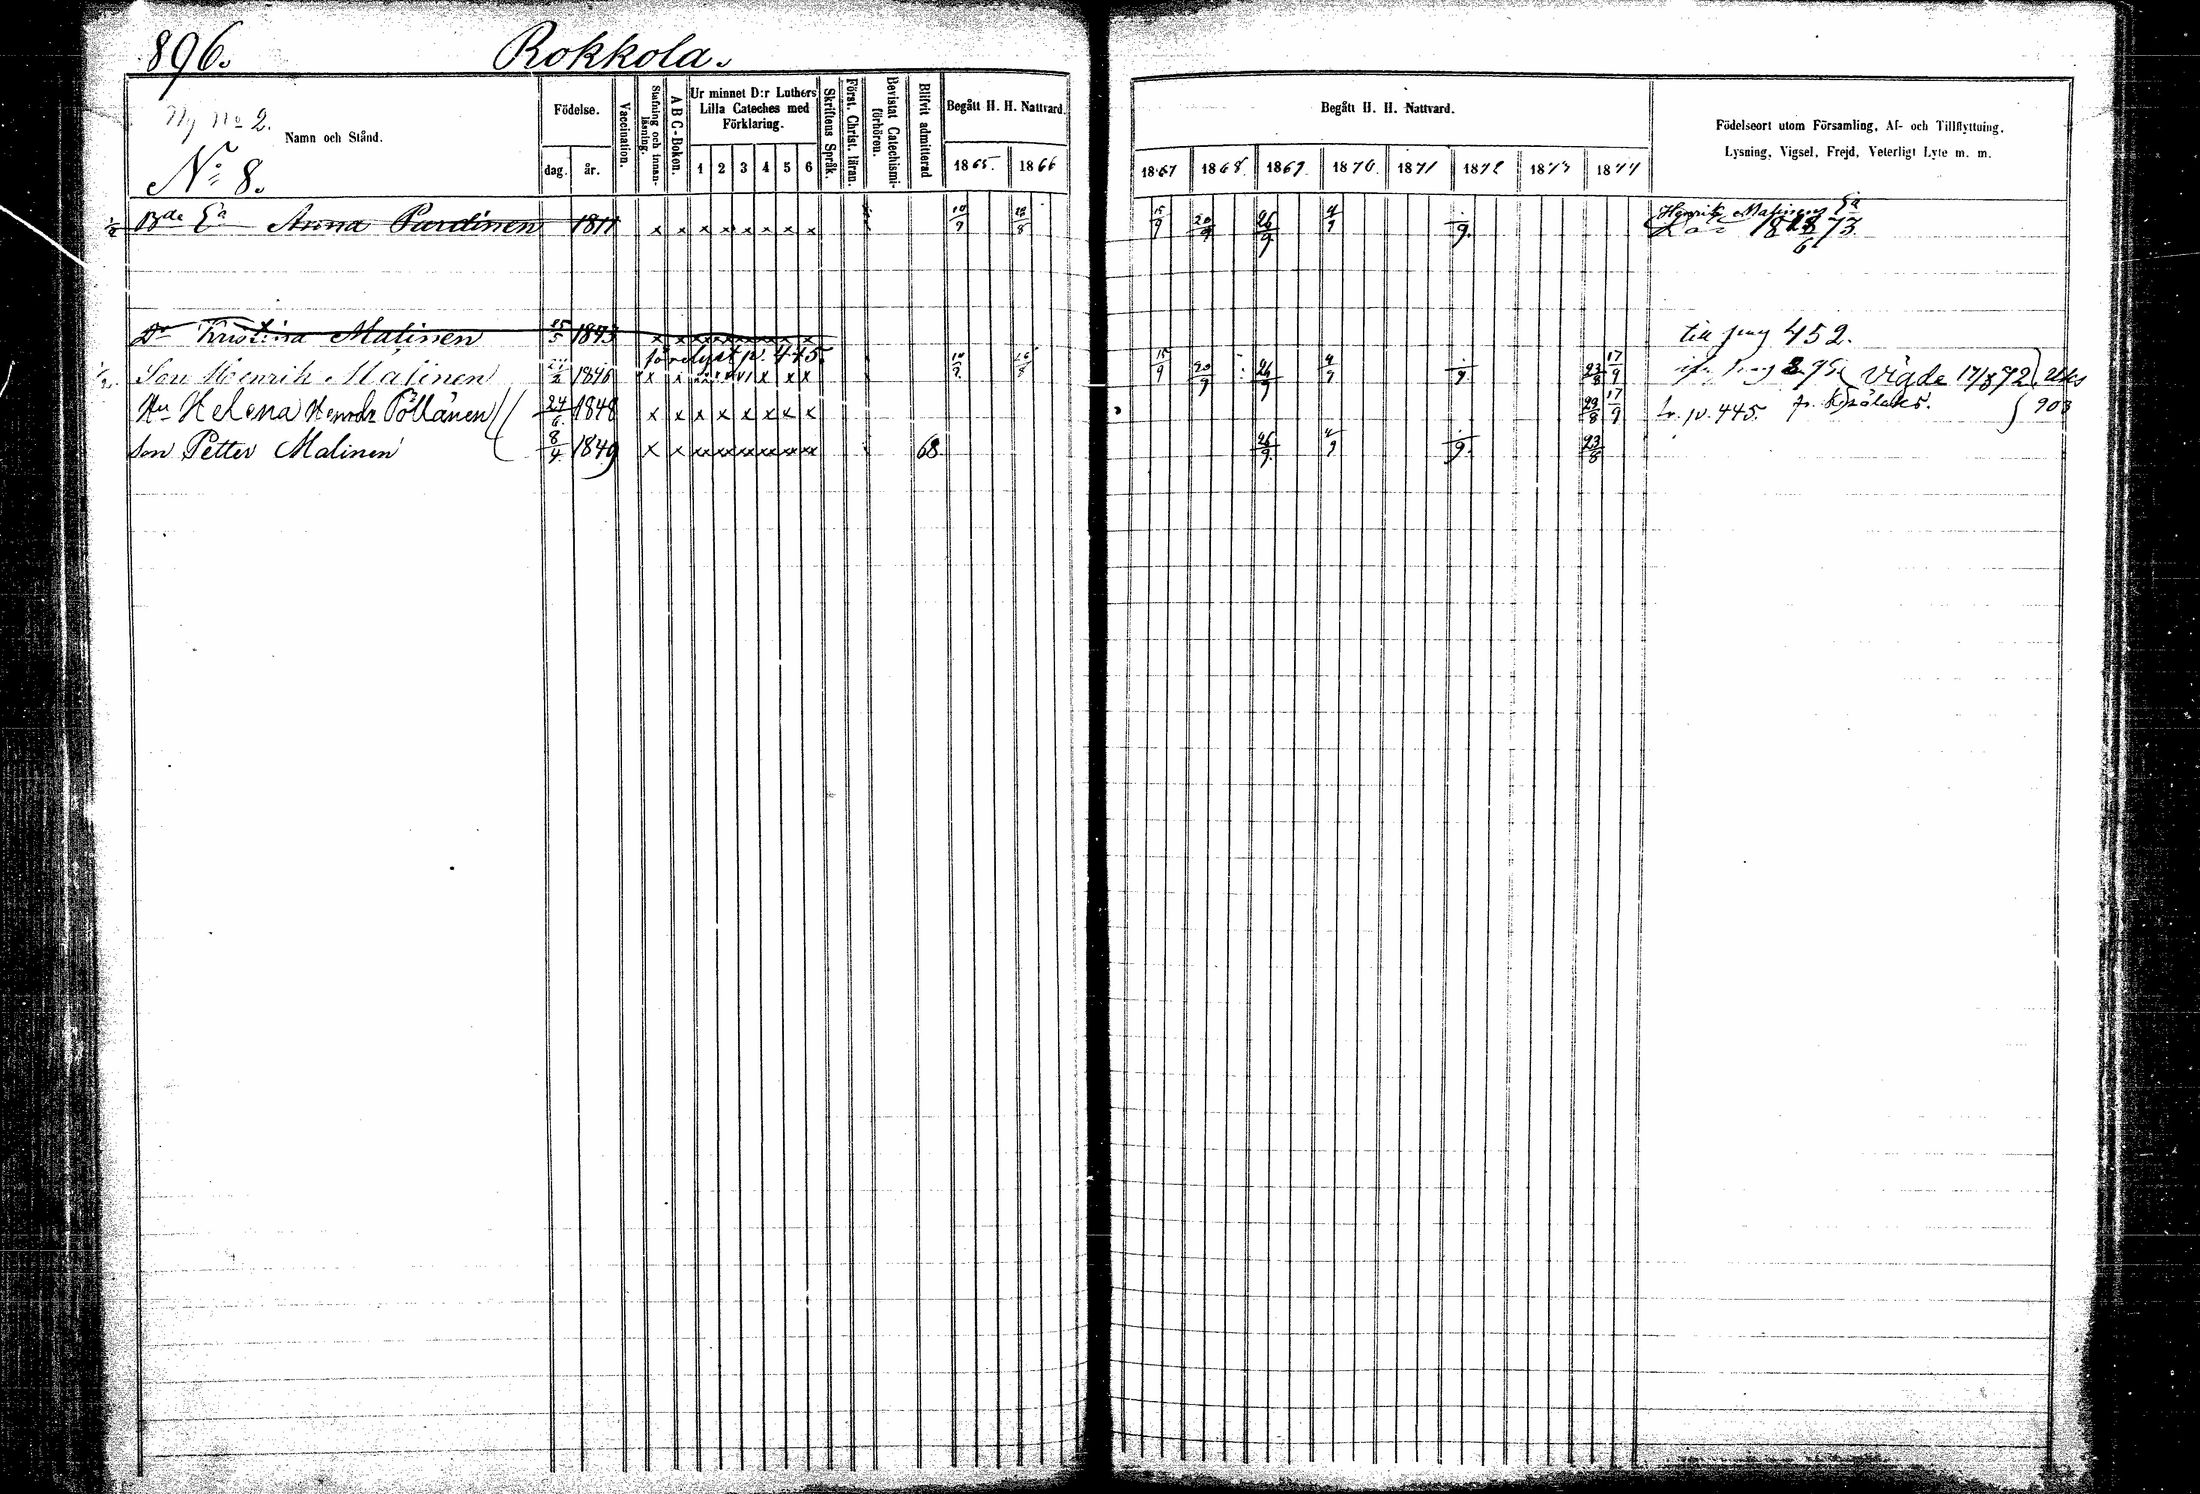 896. Rokkola.
Ny No 2.
Namn och Stånd.
No 8.
Födelse.
dag. år.
Vaccination.
Stafning och innanläsning.
A B C-Boken.
Ur minnet D:r Luthers
Lilla Cateches med
Förklaring.
1 2 3 4 5 6
Skriftens Språk.
Först. Christ. läran.
Bevistat Catechismi-
förhören.
Blifvit admitterad
Begått H. H. Nattvard.
1865. 1866
Begått H. H. Nattvard.
1867 1868. 1869. 1870. 1871 1872 1873 1874
Födelseort utom Församling, Af- och Tillflyttning,
Lysning, Vigsel, Frejd, Veterligt Lyte m. m.
1/2 Bde Ea Anna Purdinen 1811 x x x x x x x x 10/9 15/9 20/9 26/9 4/9 /9. Henrik Malinens Ea
73.
Dr Kristina Malinen 15/5 1843 x x x x x x x x till pag 452.
förelyst p. 445.
1/2. Son Henrik Malinen 1846 x x x x x 10/9 15/9 20/9 26/9 4/9 /9. 23/8 17/9 Vigde 17/8 72.
Hu Helena Henrdr Pöllänen 24/6. 1848 x x x x x x x x 23/8 17/9 fr. p. 445. 903
Son Petter Malinen 8/4 1849 x x xx xx xx xx xx xx 68. 26/9. 4/9 /9. 23/8